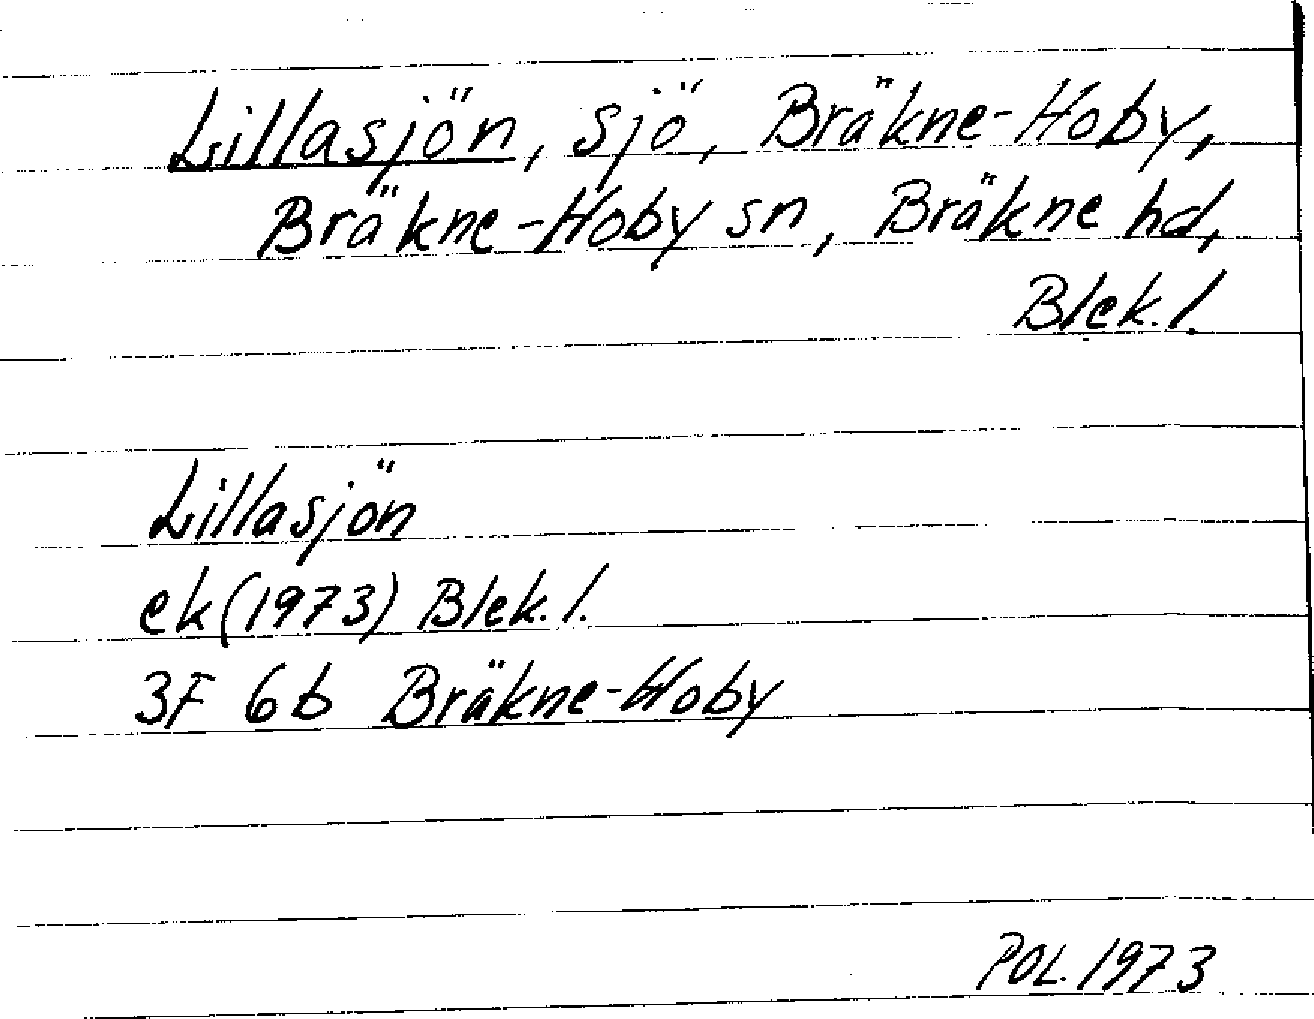 Lillasjön, sjö, Bräkne-Hoby,
Bräkne-Hoby sn, Bräkne hd,
Blek. l.
Lillasjön
ek (1973) Blek. l.
3F 6b Bräkne-Hoby
POL. 1973